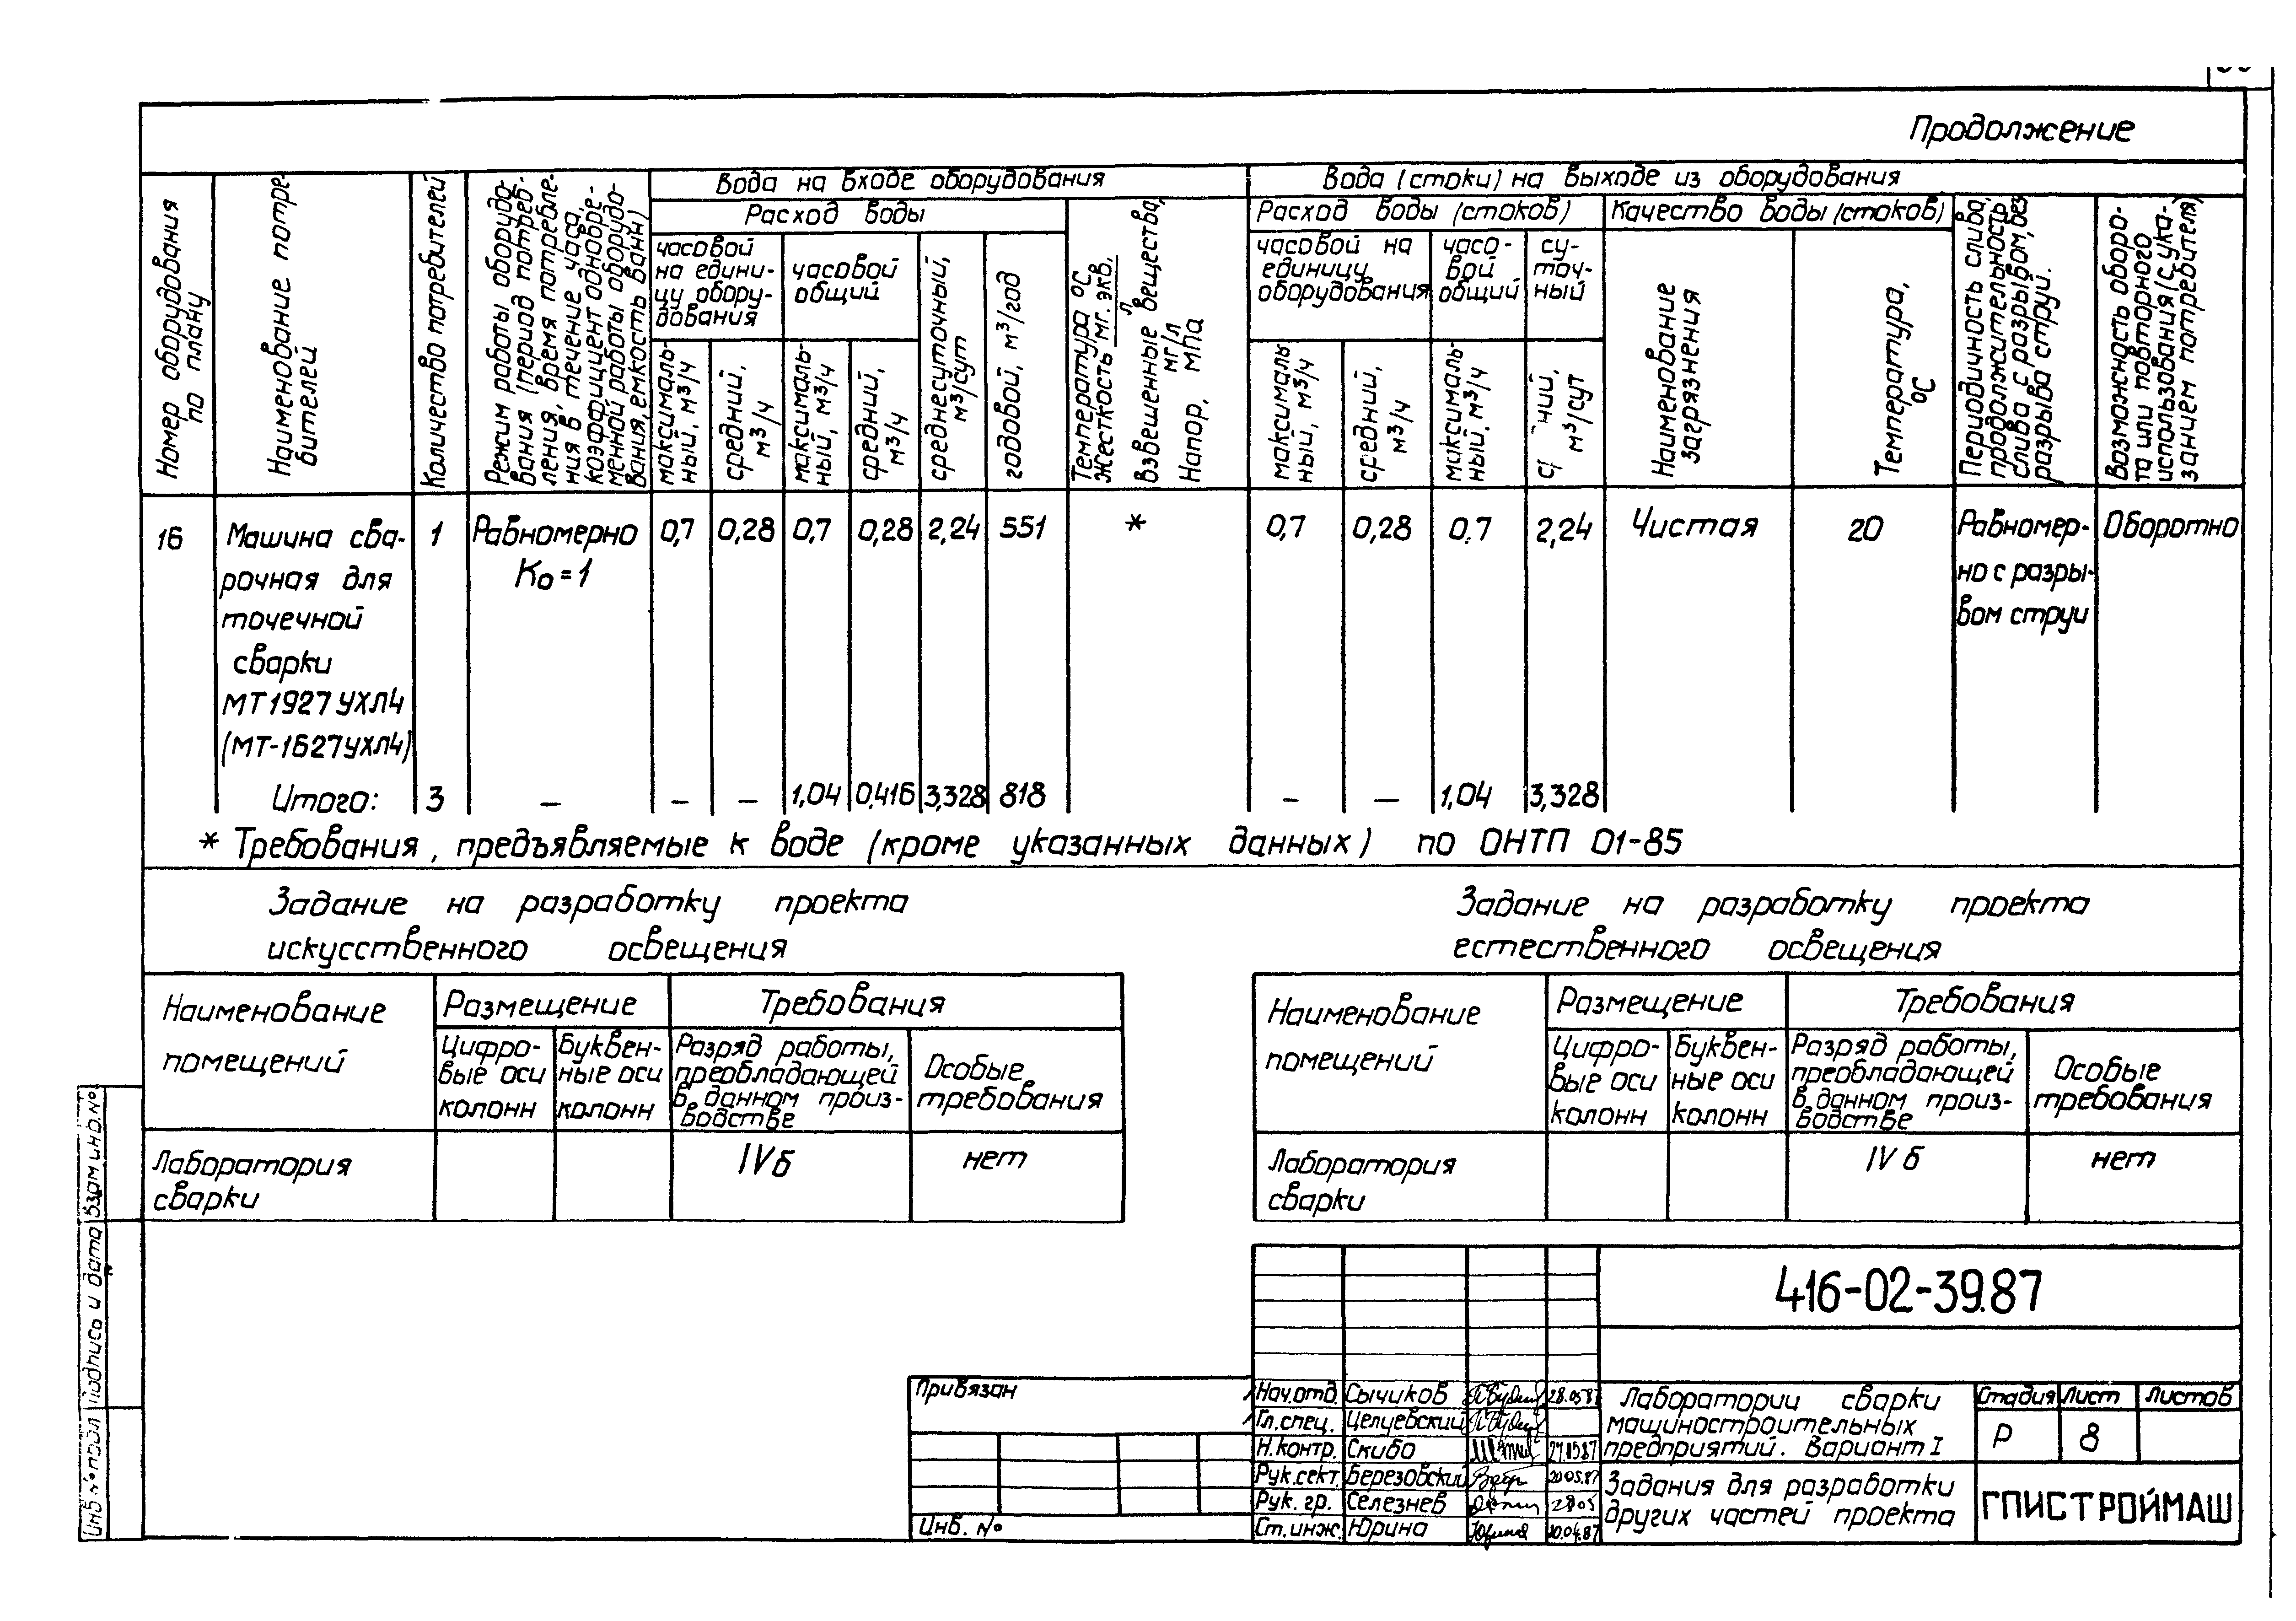 Продолжение
Номер оборудования
по плану
Наименование потре-
бителей
Количество потребителей
Режим работы оборудо-
вания (период потреб-
ления, время потребле-
ния в течение часа,
коэффициент одновре-
менной работы оборудо-
вания, емкость ванн)
Вода на входе оборудования
Расход воды
часовой
на едини-
цу обору-
дования
часовой
общий
максималь-
ный, м³/ч
средний,
м³/ч
максималь-
ный, м³/ч
средний,
м³/ч
среднесуточный,
м³/сут
годовой, м³/год
Температура °С
Жесткость мг.экв.
л
Взвешенные вещества,
мг/л
Напор, МПа
Вода (стоки) на выходе из оборудования
Расход воды (стоков)
часовой на
единицу
оборудования
часо-
вой
общий
су-
точ-
ный
максималь
ный, м³/ч
средний,
м³/ч
максималь-
ный. м³/ч
м³/сут
Качество воды (стоков)
Наименование
загрязнения
Температура,
°С
Периодичность слива,
продолжительность
слива с разрывом, без
разрыва струи.
Возможность оборо-
та или повторного
использования (с ука-
занием потребителя)
16 Машина сва- 1 Равномерно 0,7 0,28 0,7 0,28 2,24 551 * 0,7 0,28 0,7 2,24 Чистая 20 Равномер- Оборотно
рочная для Ко=1 но с разры-
точечной вом струи
сварки
МТ1927 УХЛ4
(МТ-1627УХЛ4)
Итого: 3 – – – 1,04 0,416 3,328 818 – – 1,04 3,328
* Требования, предъявляемые к воде (кроме указанных данных) по ОНТП 01-85
Задание на разработку проекта
искусственного освещения
Наименование
помещений
Размещение
Требования
Цифро-
вые оси
колонн
Буквен-
ные оси
колонн
Разряд работы,
преобладающей
в данном произ-
водстве
Особые
требования
Лаборатория
сварки
IVб
нет
Задание на разработку проекта
естественного освещения
Наименование
помещений
Размещение
Требования
Цифро-
вые оси
колонн
Буквен-
ные оси
колонн
Разряд работы,
преобладающей
в данном произ-
водстве
Особые
требования
Лаборатория
сварки
IVб
нет
Взам инв.№
Подпись и дата
Инв №подл
Привязан
Инв. №
416-02-39.87
Нач.отд. Сычиков 28.0587
Гл.спец. Целуевский
Н.контр. Скибо 27.0587
Рук.сект. Березовский 20.05.87
Рук. гр. Селезнев 2805
Ст.инж. Юрина 20.04.87
Лаборатории сварки
машиностроительных
предприятий. Вариант I
Стадия Лист Листов
Р 8
Задания для разработки
других частей проекта
ГПИСТРОЙМАШ